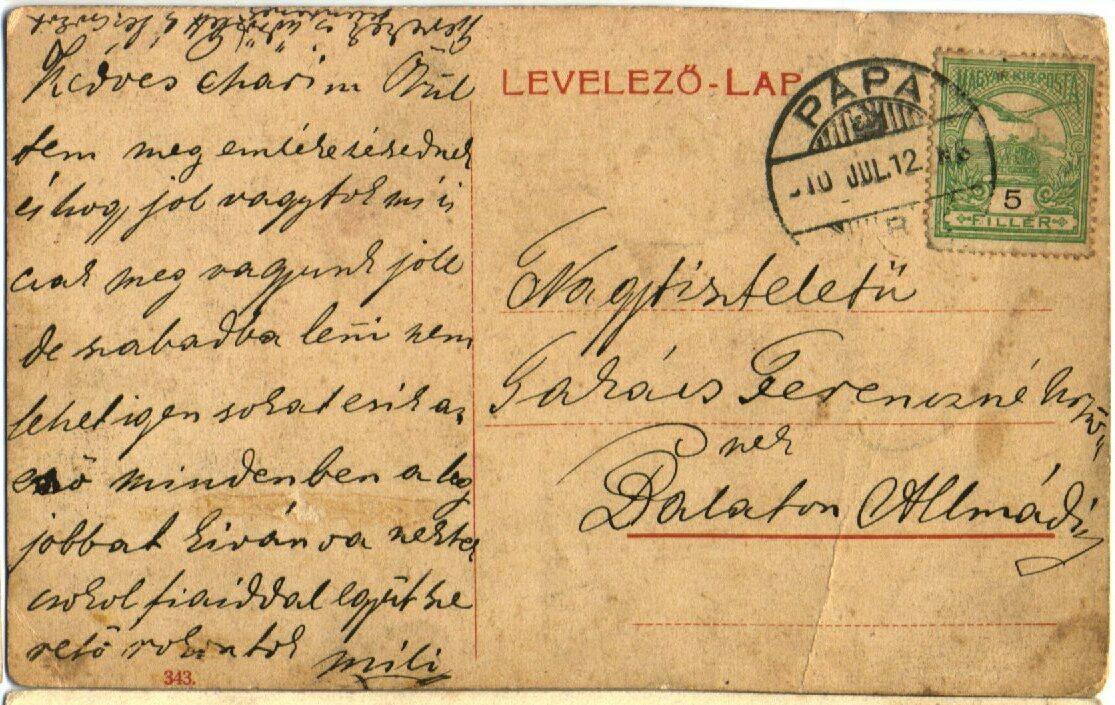 Kedves charim Örül
tem meg emlékezésednek
és hogy jol vagytok mi is
csak meg vagyunk jole
de szabadba leni nem
lehet igen sokat esik az
eső mindenben a leg
jobbat kivánva nektek
csokol fiaiddal együt sze
rető rokontok Mili
343.
LEVELEZŐ-LAP
PÁPA
910 JUL. 12.
MAGYAR KIR. POSTA
5
FILLÉR
Nagytiszteletü
Takács Ferenczné
nek
Balaton Allmádi